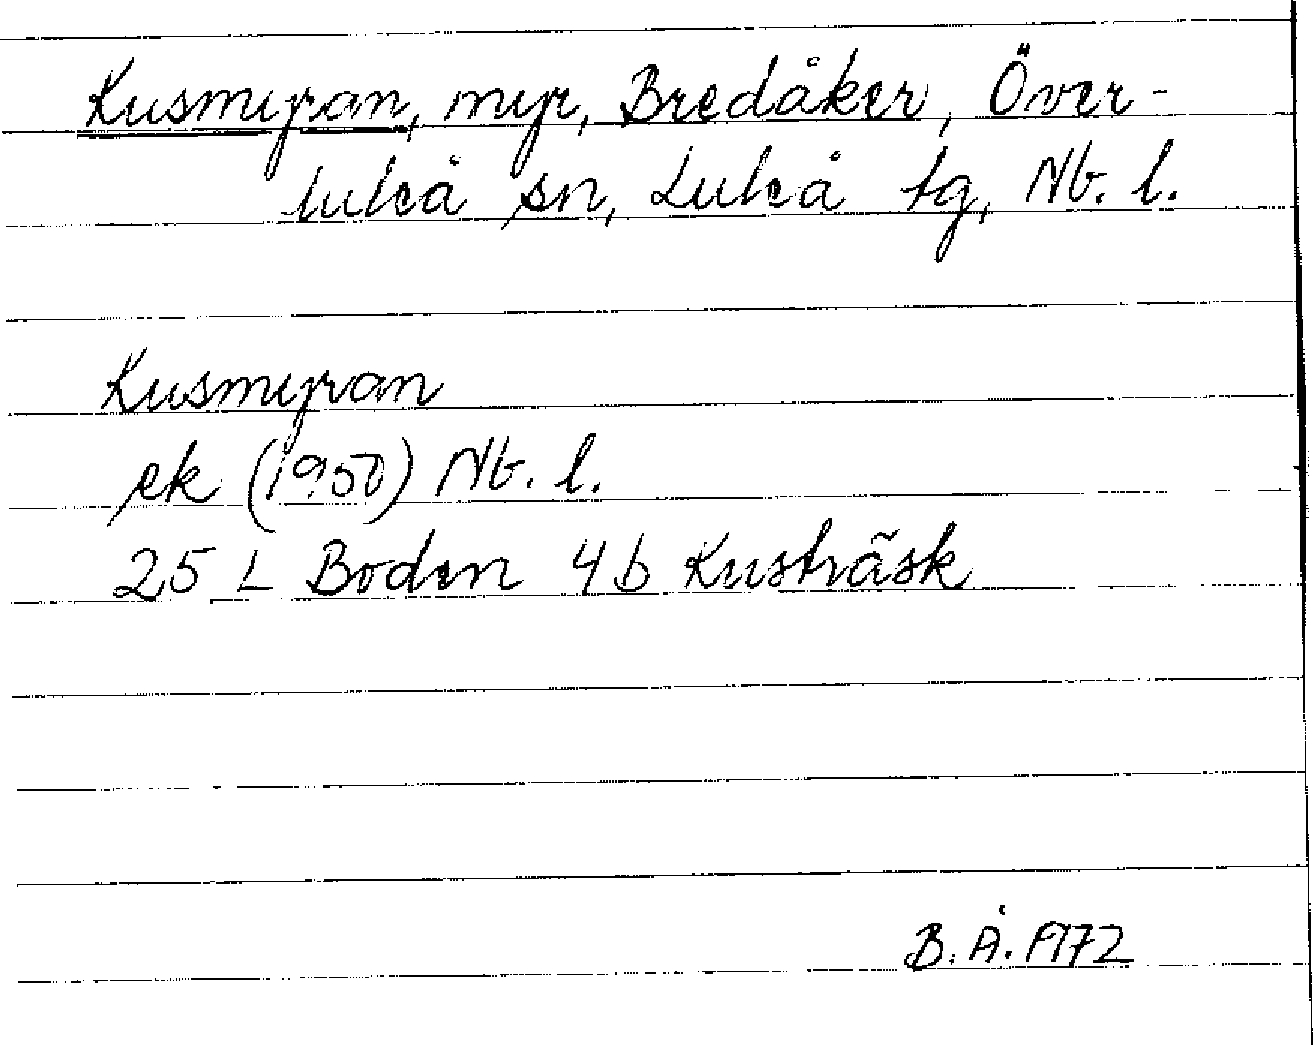 Kusmyran, myr, Bredåker, Över-
luleå sn, Luleå tg, Nb. l.
Kusmyran
ek (1950) Nb. l.
25 L Boden 4b Kusträsk
B. Å. 1972